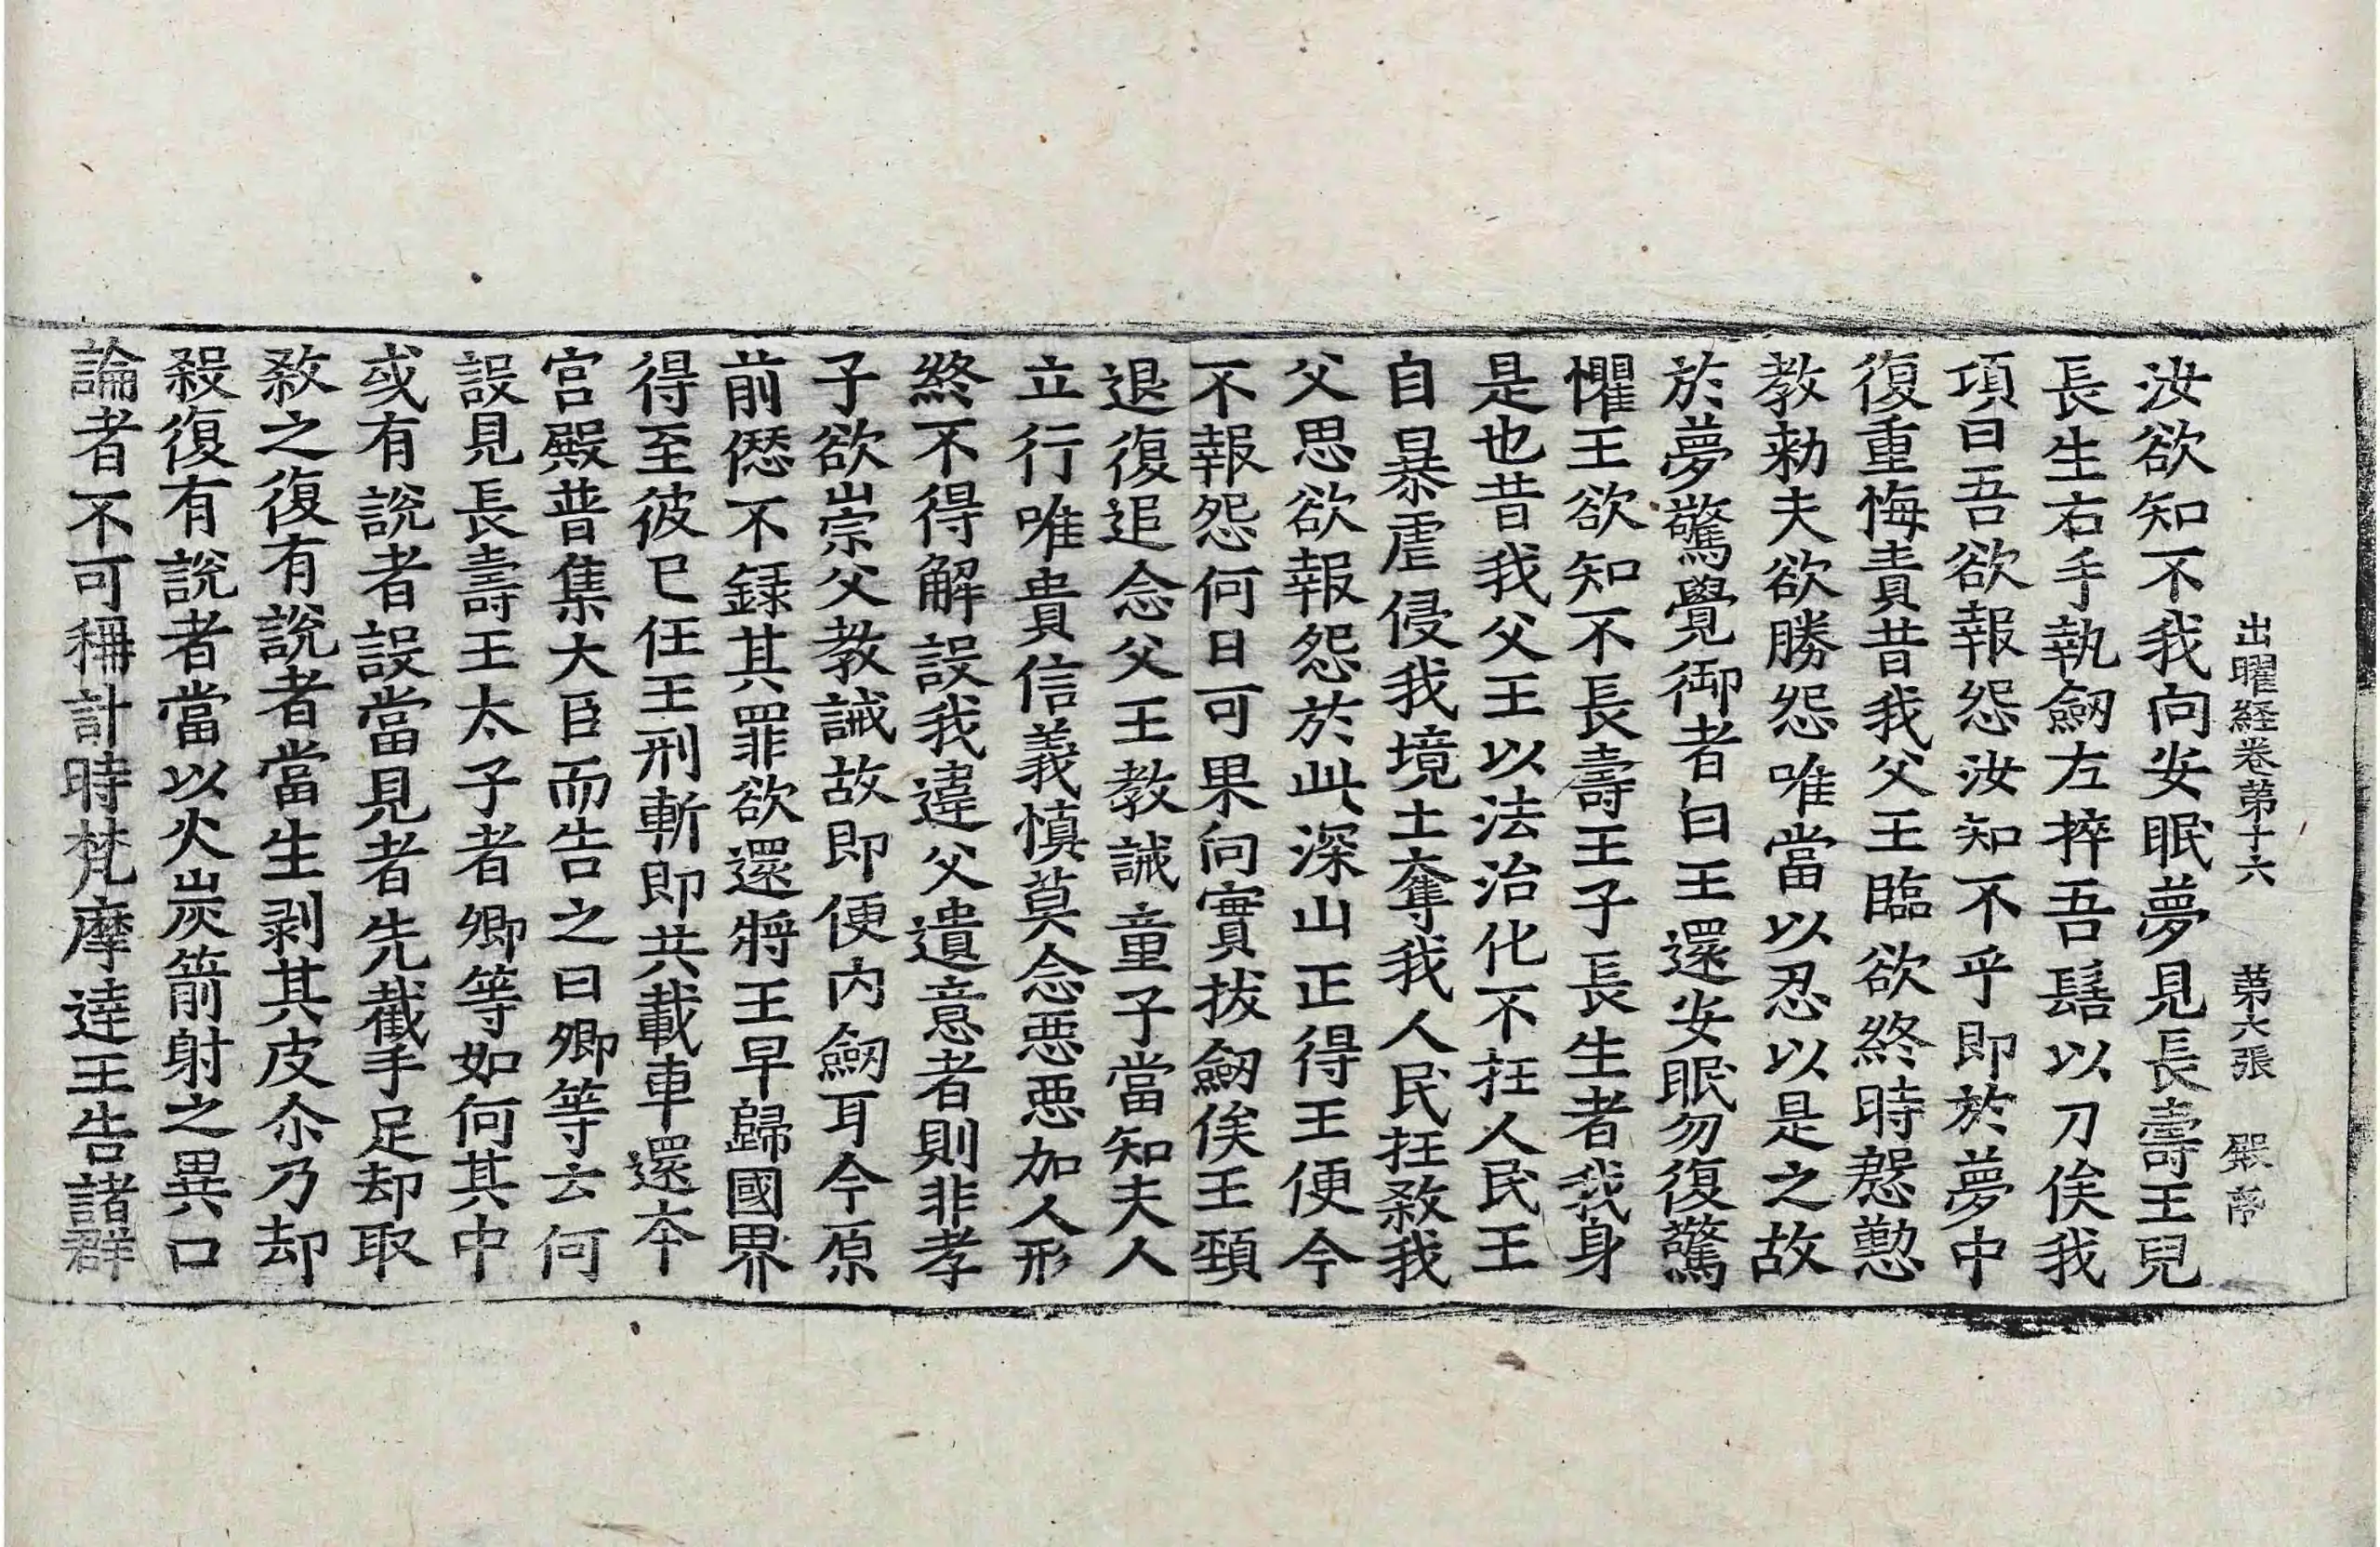 出曜経卷苐十六 苐六張 㲄
汝欲知不我向安眠夢見長壽王兒
長生右手執劒左捽吾髻以刀俟我
項曰吾欲報怨汝知不乎即於夢中
復重悔責昔我父王臨欲終時慇懃
教勑夫欲勝怨唯當以忍以是之故
於夢驚覺御者曰王還安眠勿復驚
懼王欲知不長壽王子長生者我身
是也昔我父王以法治化不抂人民王
自暴虐侵我境土奪我人民抂煞我
父思欲報怨於此深山正得王便今
不報怨何日可果向實拔劒俟王頚
退復追念父王教誡童子當知夫人
立行唯貴信義慎莫念惡惡加人形
終不得解設我違父遺意者則非孝
子欲崇父教誡故即便内劒耳今原
前𠍴不録其罪欲還將王早歸國界
得至彼已任王刑斬即共載車還夲
宫殿普集大臣而告之曰卿等云何
設見長壽王太子者卿等如何其中
或有說者設當見者先截手足却取
煞之復有說者當生剥其皮尒乃却
殺復有說者當以火炭箭射之異口
論者不可稱計時梵摩達王告諸群